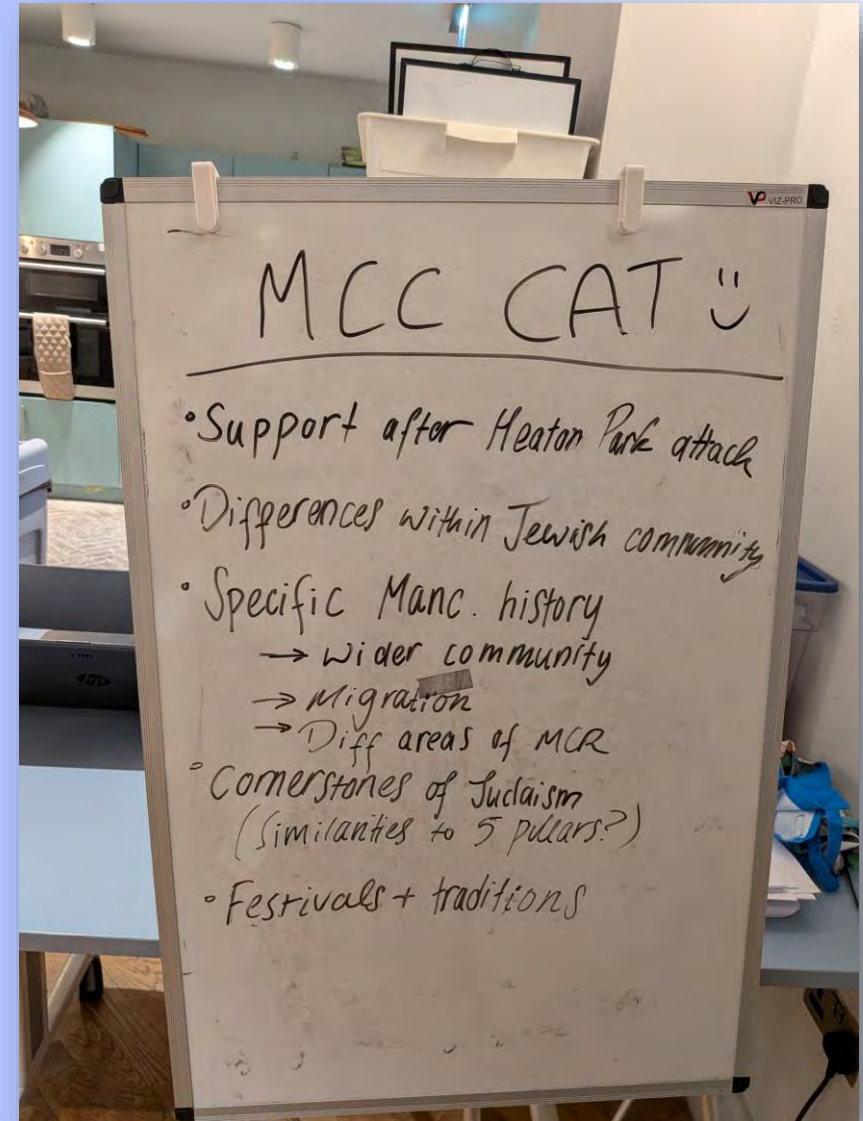 VP VIZ-PRO
MCC CAT
• Support after Heaton Park attack
• Differences within Jewish community
• Specific Manc. history
→ Wider community
→ Migration
→ Diff areas of MCR
• Cornerstones of Judaism
(Similarities to 5 pillars?)
• Festivals + traditions